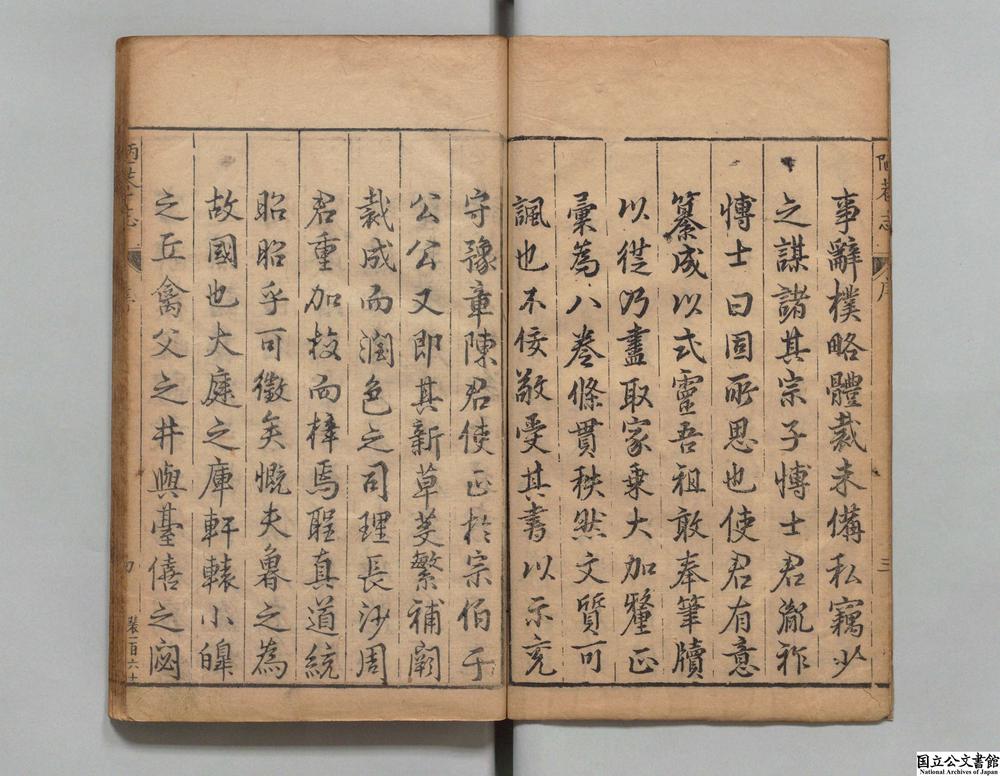 事辭樸略體裁未備私竊少
之謀諸其宗子博士君胤祚
博士曰固所思也使君有意
纂成以式靈吾祖敢奉筆牘
以從乃盡取家乗大加釐正
彙為八巻條貫秩然文質可
諷也不佞敬受其書以示兗
陋巷志
序
三
守豫章陳君使正於宗伯于
公公又即其新草芟繁補闕
裁成而潤色之司理長沙周
君重加校而梓焉聖真道統
昭昭乎可徵矣慨夫魯之為
故國也大庭之庫軒轅小皥
之丘禽父之井與臺僖之宓
陋巷志
序
國立公文書館
National Archives of Japan